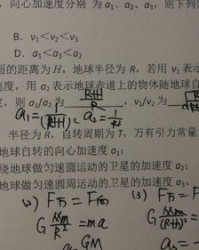 向心加速度分别 为 a₁、a₂、a₃，则下列
B. v₁<v₂<v₃
D. a₁<a₃<a₂
的距离为H，地球半径为 R，若用 v₁ 表示
速度，用 a₂ 表示地球赤道上的物体随地球自
度，则 a₁/a₂ 为 (R+H)/R ，v₁/v₂ 为
半径为 R，自转周期为 T，万有引力常量
地球自转的向心加速度；
绕地球做匀速圆运动的卫星的加速度 a₂；
地球做匀速圆周运动的卫星的加速度 a₃。
F万 = F向 (3) F万 = F
G Mm/R² = ma G Mm/(R+H)² =
GM